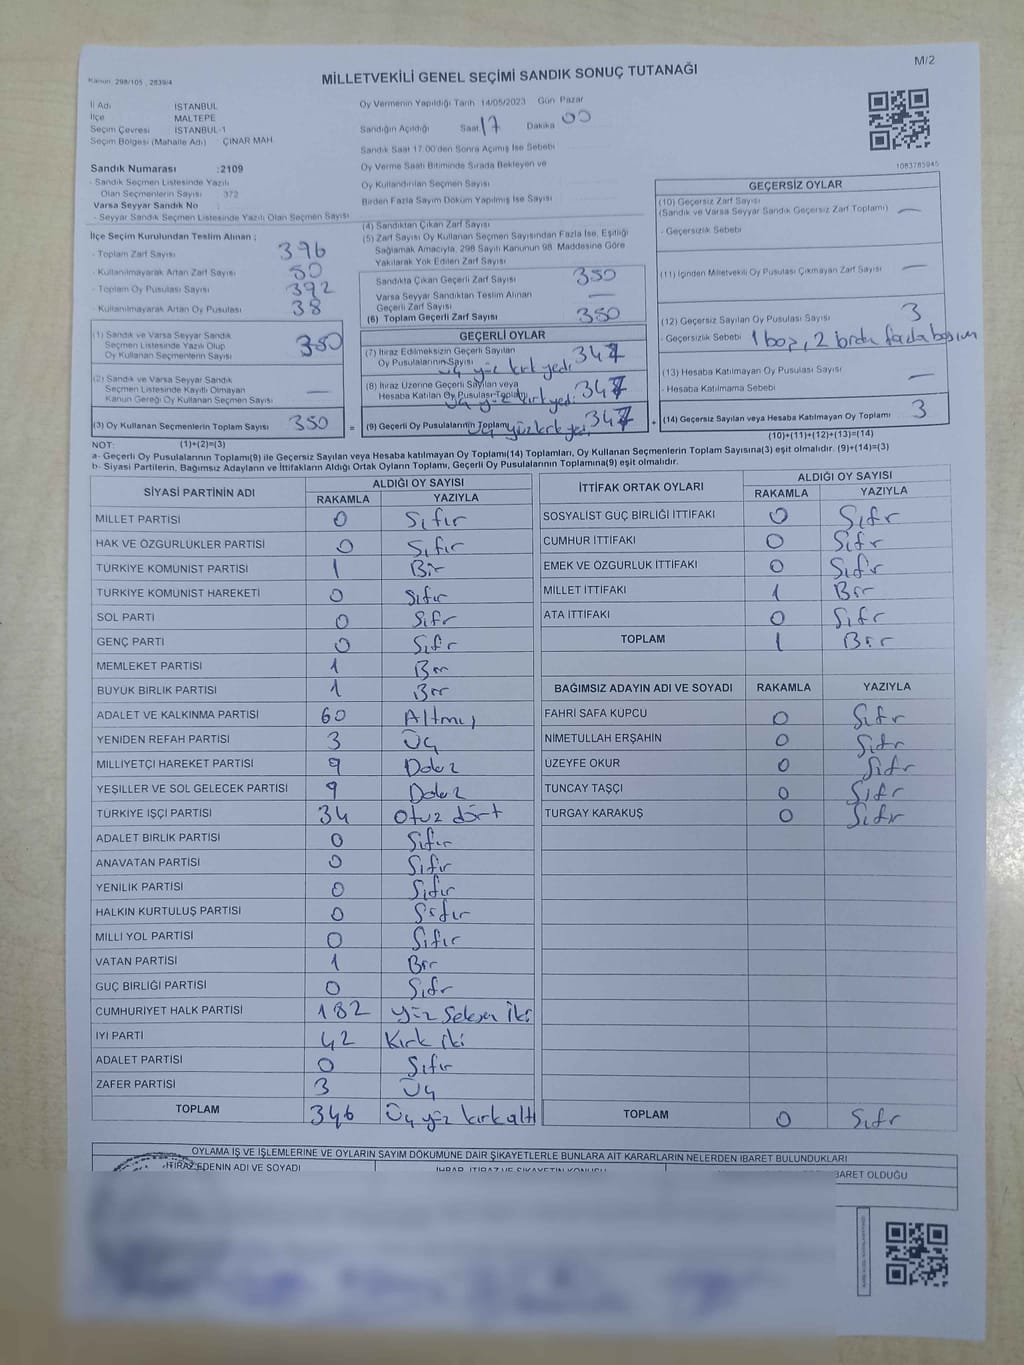 M/2
Kanun 298/105 , 2839/4
MİLLETVEKİLİ GENEL SEÇİMİ SANDIK SONUÇ TUTANAĞI
İl Adı İSTANBUL
İlçe MALTEPE
Seçim Çevresi İSTANBUL-1
Seçim Bölgesi (Mahalle Adı) ÇINAR MAH
Oy Vermenin Yapıldığı Tarih 14/05/2023 Gün Pazar
Sandığın Açıldığı Saat 17 Dakika 00
Sandık Saat 17.00'den Sonra Açılmış İse Sebebi
1083785945
Sandık Numarası :2109
- Sandık Seçmen Listesinde Yazılı
Olan Seçmenlerin Sayısı : 372
Varsa Seyyar Sandık No :
- Seyyar Sandık Seçmen Listesinde Yazılı Olan Seçmen Sayısı
Oy Verme Saati Bitiminde Sırada Bekleyen ve
Oy Kullandırılan Seçmen Sayısı
Birden Fazla Sayım Döküm Yapılmış İse Sayısı
İlçe Seçim Kurulundan Teslim Alınan ;
- Toplam Zarf Sayısı 396
- Kullanılmayarak Artan Zarf Sayısı 50
- Toplam Oy Pusulası Sayısı 392
- Kullanılmayarak Artan Oy Pusulası 38
(1) Sandık ve Varsa Seyyar Sandık
Seçmen Listesinde Yazılı Olup
Oy Kullanan Seçmenlerin Sayısı 350
(2) Sandık ve Varsa Seyyar Sandık
Seçmen Listesinde Kayıtlı Olmayan
Kanun Gereği Oy Kullanan Seçmen Sayısı —
(3) Oy Kullanan Seçmenlerin Toplam Sayısı 350
(4) Sandıktan Çıkan Zarf Sayısı
(5) Zarf Sayısı Oy Kullanan Seçmen Sayısından Fazla İse, Eşitliği
Sağlamak Amacıyla, 298 Sayılı Kanunun 98. Maddesine Göre
Yakılarak Yok Edilen Zarf Sayısı
Sandıkta Çıkan Geçerli Zarf Sayısı 350
Varsa Seyyar Sandıktan Teslim Alınan
Geçerli Zarf Sayısı —
(6) Toplam Geçerli Zarf Sayısı 350
GEÇERLİ OYLAR
(7) İtiraz Edilmeksizin Geçerli Sayılan
Oy Pusulalarının Sayısı 347
üç yüz kırk yedi
(8) İtiraz Üzerine Geçerli Sayılan veya
Hesaba Katılan Oy Pusulası Toplamı 347
üç yüz kırk yedi
= (9) Geçerli Oy Pusulalarının Toplamı 347
üç yüz kırk yedi
GEÇERSİZ OYLAR
(10) Geçersiz Zarf Sayısı
(Sandık ve Varsa Seyyar Sandık Geçersiz Zarf Toplamı) —
- Geçersizlik Sebebi
(11) İçinden Milletvekili Oy Pusulası Çıkmayan Zarf Sayısı —
(12) Geçersiz Sayılan Oy Pusulası Sayısı 3
- Geçersizlik Sebebi 1 boş, 2 birden fazla basım
(13) Hesaba Katılmayan Oy Pusulası Sayısı
- Hesaba Katılmama Sebebi —
+ (14) Geçersiz Sayılan veya Hesaba Katılmayan Oy Toplamı 3
NOT: (1)+(2)=(3) (10)+(11)+(12)+(13)=(14)
a- Geçerli Oy Pusulalarının Toplamı(9) ile Geçersiz Sayılan veya Hesaba katılmayan Oy Toplamı(14) Toplamları, Oy Kullanan Seçmenlerin Toplam Sayısına(3) eşit olmalıdır. (9)+(14)=(3)
b- Siyasi Partilerin, Bağımsız Adayların ve İttifakların Aldığı Ortak Oyların Toplamı, Geçerli Oy Pusulalarının Toplamına(9) eşit olmalıdır.
SİYASİ PARTİNİN ADI ALDIĞI OY SAYISI
RAKAMLA YAZIYLA
MİLLET PARTİSİ 0 Sıfır
HAK VE ÖZGÜRLÜKLER PARTİSİ 0 Sıfır
TÜRKİYE KOMÜNİST PARTİSİ 1 Bir
TÜRKİYE KOMÜNİST HAREKETİ 0 Sıfır
SOL PARTİ 0 Sıfır
GENÇ PARTİ 0 Sıfır
MEMLEKET PARTİSİ 1 Bir
BÜYÜK BİRLİK PARTİSİ 1 Bir
ADALET VE KALKINMA PARTİSİ 60 Altmış
YENİDEN REFAH PARTİSİ 3 Üç
MİLLİYETÇİ HAREKET PARTİSİ 9 Dokuz
YEŞİLLER VE SOL GELECEK PARTİSİ 9 Dokuz
TÜRKİYE İŞÇİ PARTİSİ 34 Otuz dört
ADALET BİRLİK PARTİSİ 0 Sıfır
ANAVATAN PARTİSİ 0 Sıfır
YENİLİK PARTİSİ 0 Sıfır
HALKIN KURTULUŞ PARTİSİ 0 Sıfır
MİLLİ YOL PARTİSİ 0 Sıfır
VATAN PARTİSİ 1 Bir
GÜÇ BİRLİĞİ PARTİSİ 0 Sıfır
CUMHURİYET HALK PARTİSİ 182 Yüz Seksen İki
İYİ PARTİ 42 Kırk İki
ADALET PARTİSİ 0 Sıfır
ZAFER PARTİSİ 3 Üç
TOPLAM 346 Üç yüz kırk altı
İTTİFAK ORTAK OYLARI ALDIĞI OY SAYISI
RAKAMLA YAZIYLA
SOSYALİST GÜÇ BİRLİĞİ İTTİFAKI 0 Sıfır
CUMHUR İTTİFAKI 0 Sıfır
EMEK VE ÖZGÜRLÜK İTTİFAKI 0 Sıfır
MİLLET İTTİFAKI 1 Bir
ATA İTTİFAKI 0 Sıfır
TOPLAM 1 Bir
BAĞIMSIZ ADAYIN ADI VE SOYADI RAKAMLA YAZIYLA
FAHRİ SAFA KÜPCÜ 0 Sıfır
NİMETULLAH ERŞAHİN 0 Sıfır
ÜZEYFE OKUR 0 Sıfır
TUNCAY TAŞÇI 0 Sıfır
TURGAY KARAKUŞ 0 Sıfır
TOPLAM 0 Sıfır
OYLAMA İŞ VE İŞLEMLERİNE VE OYLARIN SAYIM DÖKÜMÜNE DAİR ŞİKAYETLERLE BUNLARA AİT KARARLARIN NELERDEN İBARET BULUNDUKLARI
İTİRAZ EDENİN ADI VE SOYADI İHBAR, İTİRAZ VE ŞİKAYETİN KONUSU BARET OLDUĞU